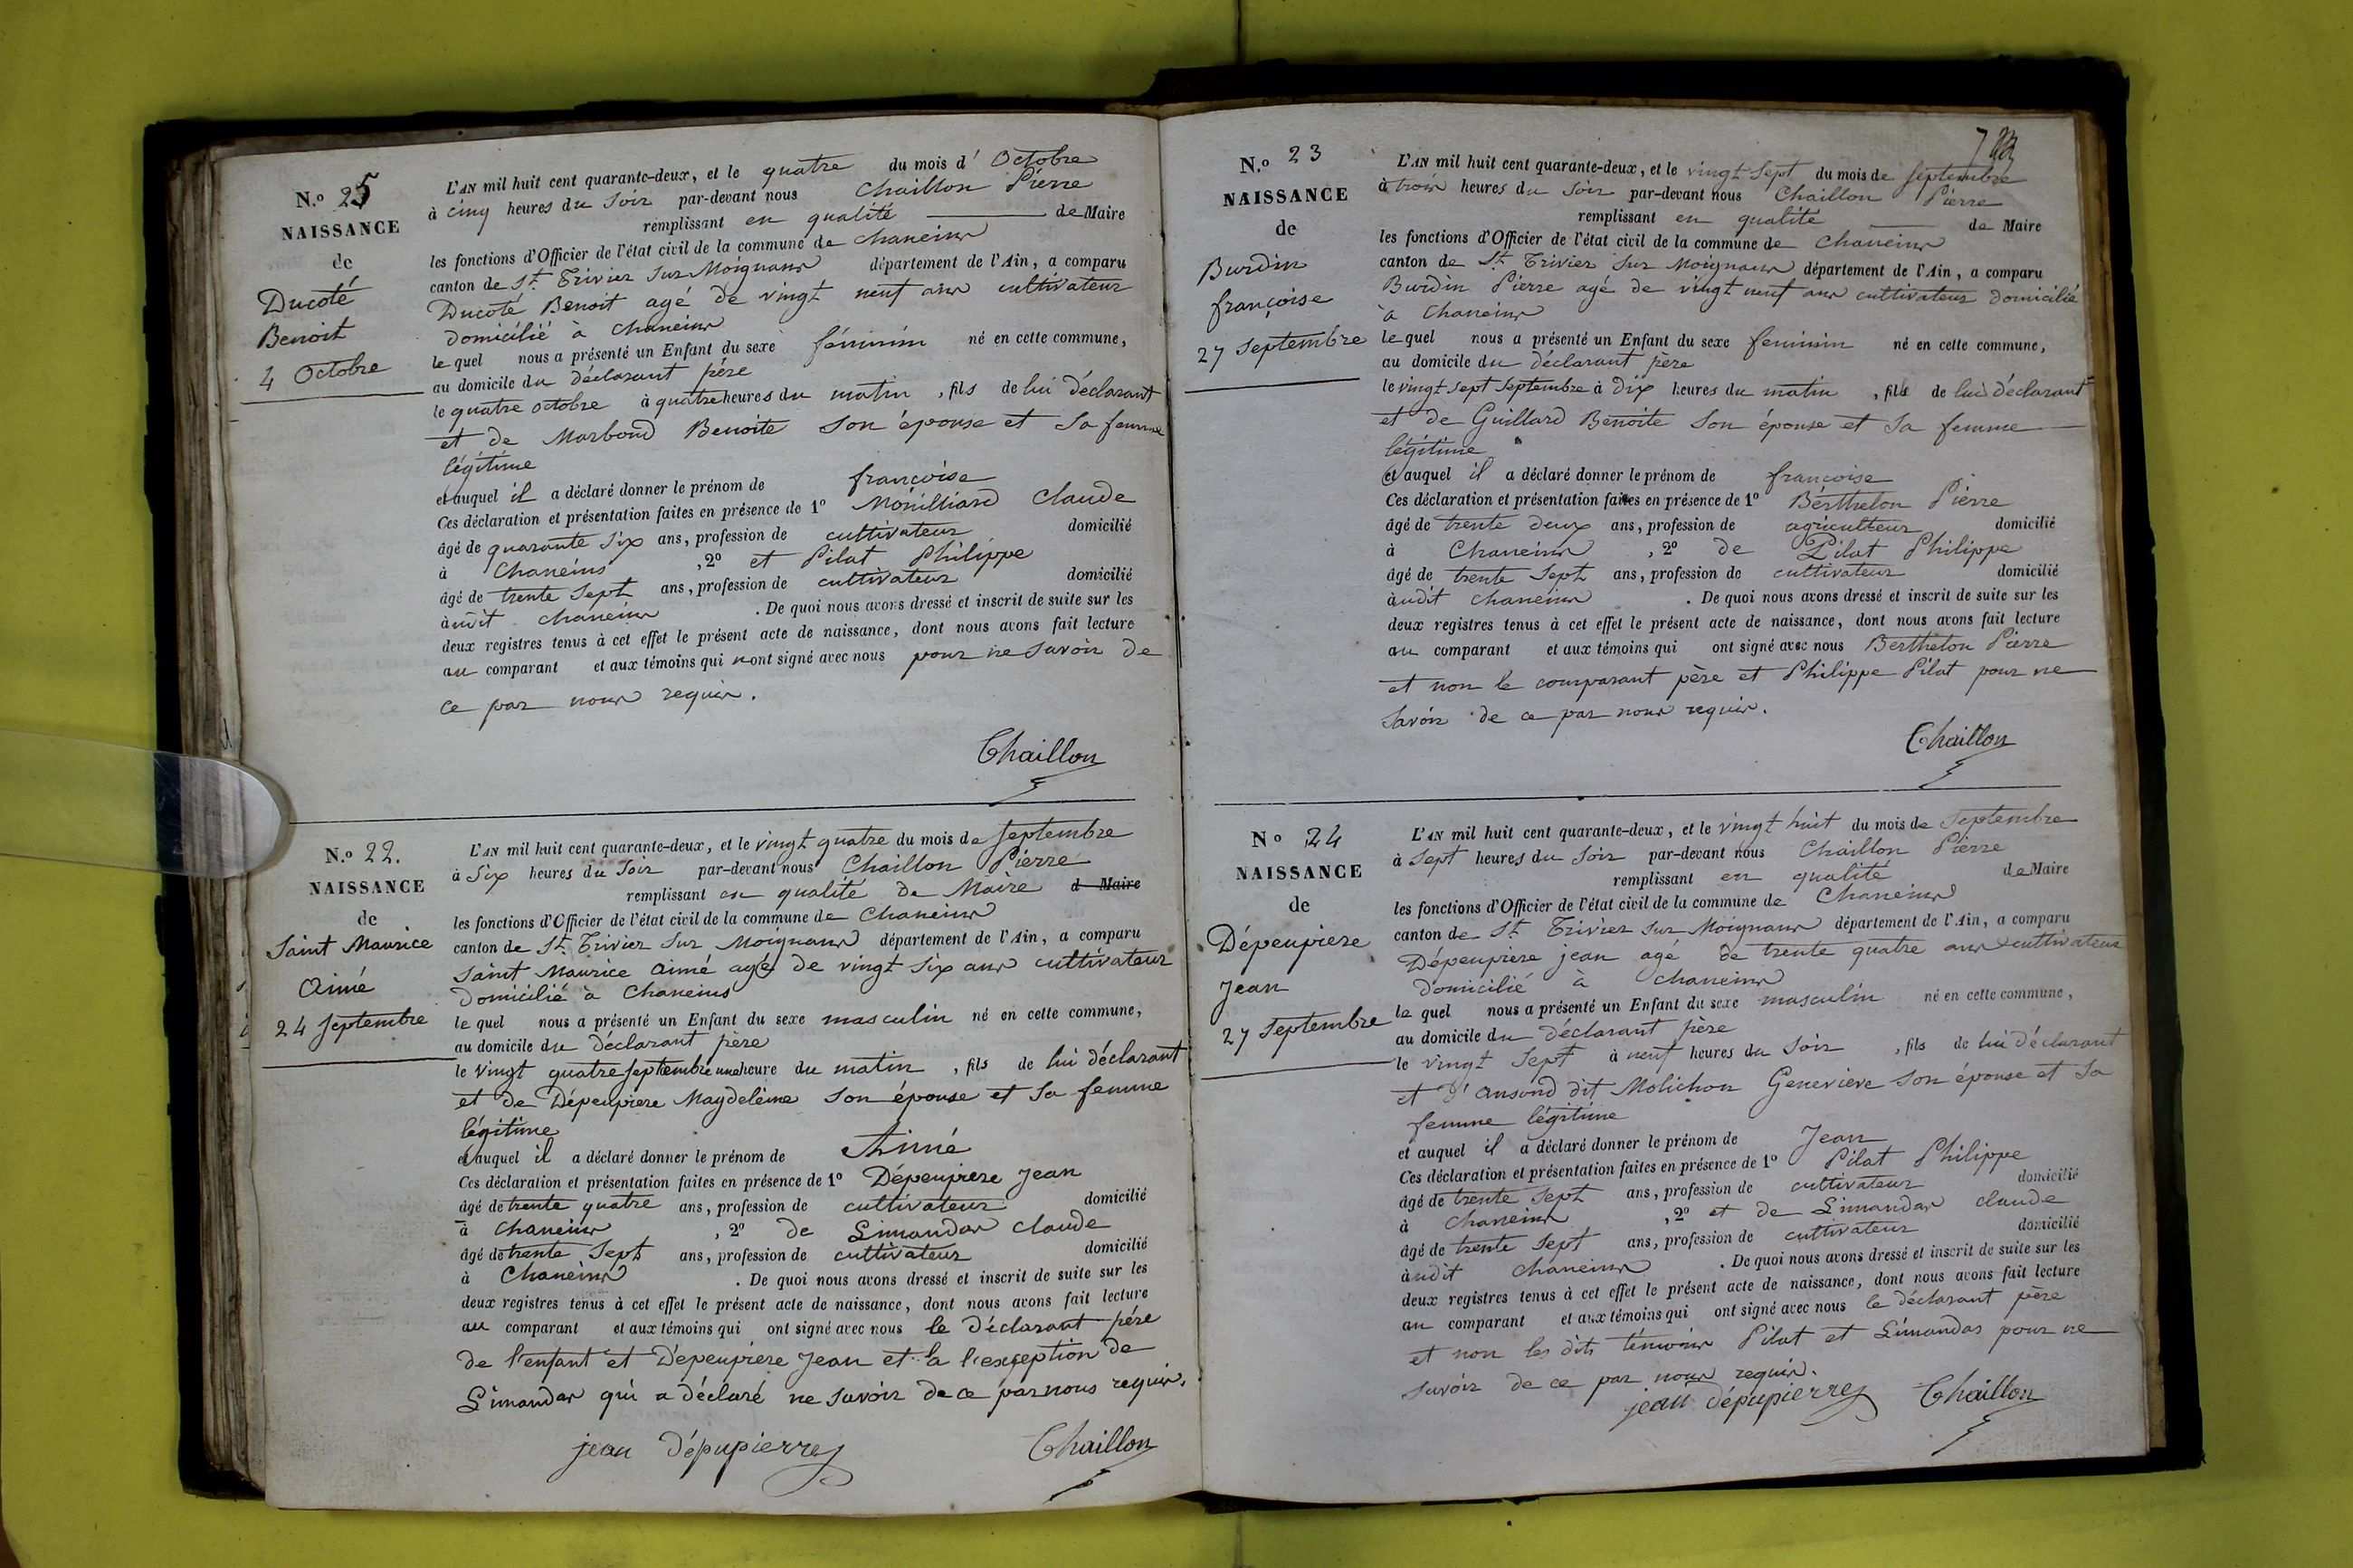 N.o 25
NAISSANCE
de
Ducoté
Benoit
4 Octobre
L'AN mil huit cent quarante-deux, et le quatre du mois d' Octobre
à cinq heures du soir par-devant nous Chaillon Pierre
remplissant en qualité de Maire
les fonctions d'Officier de l'état civil de la commune de chaneins
canton de St. Trivier sur Moignans département de l'Ain, a comparu
Ducoté Benoit agé de vingt neuf ans cultivateur
domicilié à chaneins
le quel nous a présenté un Enfant du sexe féminin né en cette commune,
au domicile du déclarant père
le quatre octobre à quatre heures du matin , fils de lui déclarant
et de Marboud Benoite son épouse et sa femme
légitime
et auquel il a déclaré donner le prénom de françoise
Ces déclaration et présentation faites en présence de 1o Mouilliard Claude
âgé de quarante six ans, profession de cultivateur domicilié
à Chaneins , 2o et Pilat Philippe
âgé de trente sept ans, profession de cultivateur domicilié
àudit chaneins . De quoi nous avons dressé et inscrit de suite sur les
deux registres tenus à cet effet le présent acte de naissance, dont nous avons fait lecture
au comparant et aux témoins qui nont signé avec nous pour ne savoir de
ce par nous requis.
Chaillon
N.o 22.
NAISSANCE
de
Saint Maurice
Aimé
24 septembre
L'AN mil huit cent quarante-deux, et le vingt quatre du mois de septembre
à six heures du soir par-devant nous Chaillon Pierre
remplissant en qualité de Maire d Maire
les fonctions d'Officier de l'état civil de la commune de Chaneins
canton de St. Trivier sur Moignans département de l'Ain, a comparu
Saint Maurice aimé agé de vingt six ans cultivateur
domicilié à Chaneins
le quel nous a présenté un Enfant du sexe masculin né en cette commune,
au domicile du déclarant père
le vingt quatre septembre une heure du matin , fils de lui déclarant
et de Dépeupiere Magdeleine son épouse et sa femme
légitime
et auquel il a déclaré donner le prénom de Aimé
Ces déclaration et présentation faites en présence de 1o Dépeupiere Jean
âgé de trente quatre ans, profession de cultivateur domicilié
à chaneins , 2o de Limandas claude
âgé de trente sept ans, profession de cultivateur domicilié
à Chaneins . De quoi nous avons dressé et inscrit de suite sur les
deux registres tenus à cet effet le présent acte de naissance, dont nous avons fait lecture
au comparant et aux témoins qui ont signé avec nous le déclarant père
de l'enfant et Dépeupiere Jean et à l'exception de
Limandas qui a déclaré ne savoir de ce par nous requis.
jean dépupierre
Chaillon
N.o 23
NAISSANCE
de
Burdin
françoise
27 septembre
L'AN mil huit cent quarante-deux, et le vingt sept du mois de septembre
à trois heures du soir par-devant nous Chaillon Pierre
remplissant en qualité de Maire
les fonctions d'Officier de l'état civil de la commune de chaneins
canton de St. Trivier sur Moignans département de l'Ain, a comparu
Burdin Pierre agé de vingt neuf ans cultivateur domicilié
à Chaneins
le quel nous a présenté un Enfant du sexe feminin né en cette commune,
au domicile du déclarant père
le vingt sept septembre à dix heures du matin , fils de lui déclarant
et de Guillard Benoite son épouse et sa femme
légitime
et auquel il a déclaré donner le prénom de françoise
Ces déclaration et présentation faites en présence de 1o Berthelon Pierre
âgé de trente deux ans, profession de agriculteur domicilié
à Chaneins , 2o de Pilat Philippe
âgé de trente sept ans, profession de cultivateur domicilié
àudit chaneins . De quoi nous avons dressé et inscrit de suite sur les
deux registres tenus à cet effet le présent acte de naissance, dont nous avons fait lecture
au comparant et aux témoins qui ont signé avec nous Berthelon Pierre
et non le comparant père et Philippe Pilat pour ne
savoir de ce par nous requis.
Chaillon
No 24
NAISSANCE
de
Dépeupiere
Jean
27 septembre
L'AN mil huit cent quarante-deux, et le vingt huit du mois de septembre
à sept heures du soir par-devant nous Chaillon Pierre
remplissant en qualité de Maire
les fonctions d'Officier de l'état civil de la commune de Chaneins
canton de St. Trivier sur Moignans département de l'Ain, a comparu
Dépeupiere jean agé de trente quatre ans cultivateur
domicilié à chaneins
le quel nous a présenté un Enfant du sexe masculin né en cette commune,
au domicile du déclarant père
le vingt sept à neuf heures du soir , fils de lui déclarant
et d'ansond dit Molichon Genevieve son épouse et sa
femme légitime
et auquel il a déclaré donner le prénom de Jean
Ces déclaration et présentation faites en présence de 1o Pilat Philippe
âgé de trente sept ans, profession de cultivateur domicilié
à chaneins , 2o et de Limandas claude
âgé de trente sept ans, profession de cultivateur domicilié
àudit chaneins . De quoi nous avons dressé et inscrit de suite sur les
deux registres tenus à cet effet le présent acte de naissance, dont nous avons fait lecture
au comparant et aux témoins qui ont signé avec nous le déclarant père
et non les dits témoins Pilat et Limandas pour ne
savoir de ce par nous requis.
jean dépupierre
Chaillon